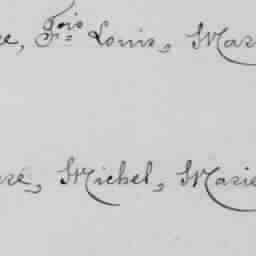 Fois Louis, Mar
Michel, Marie